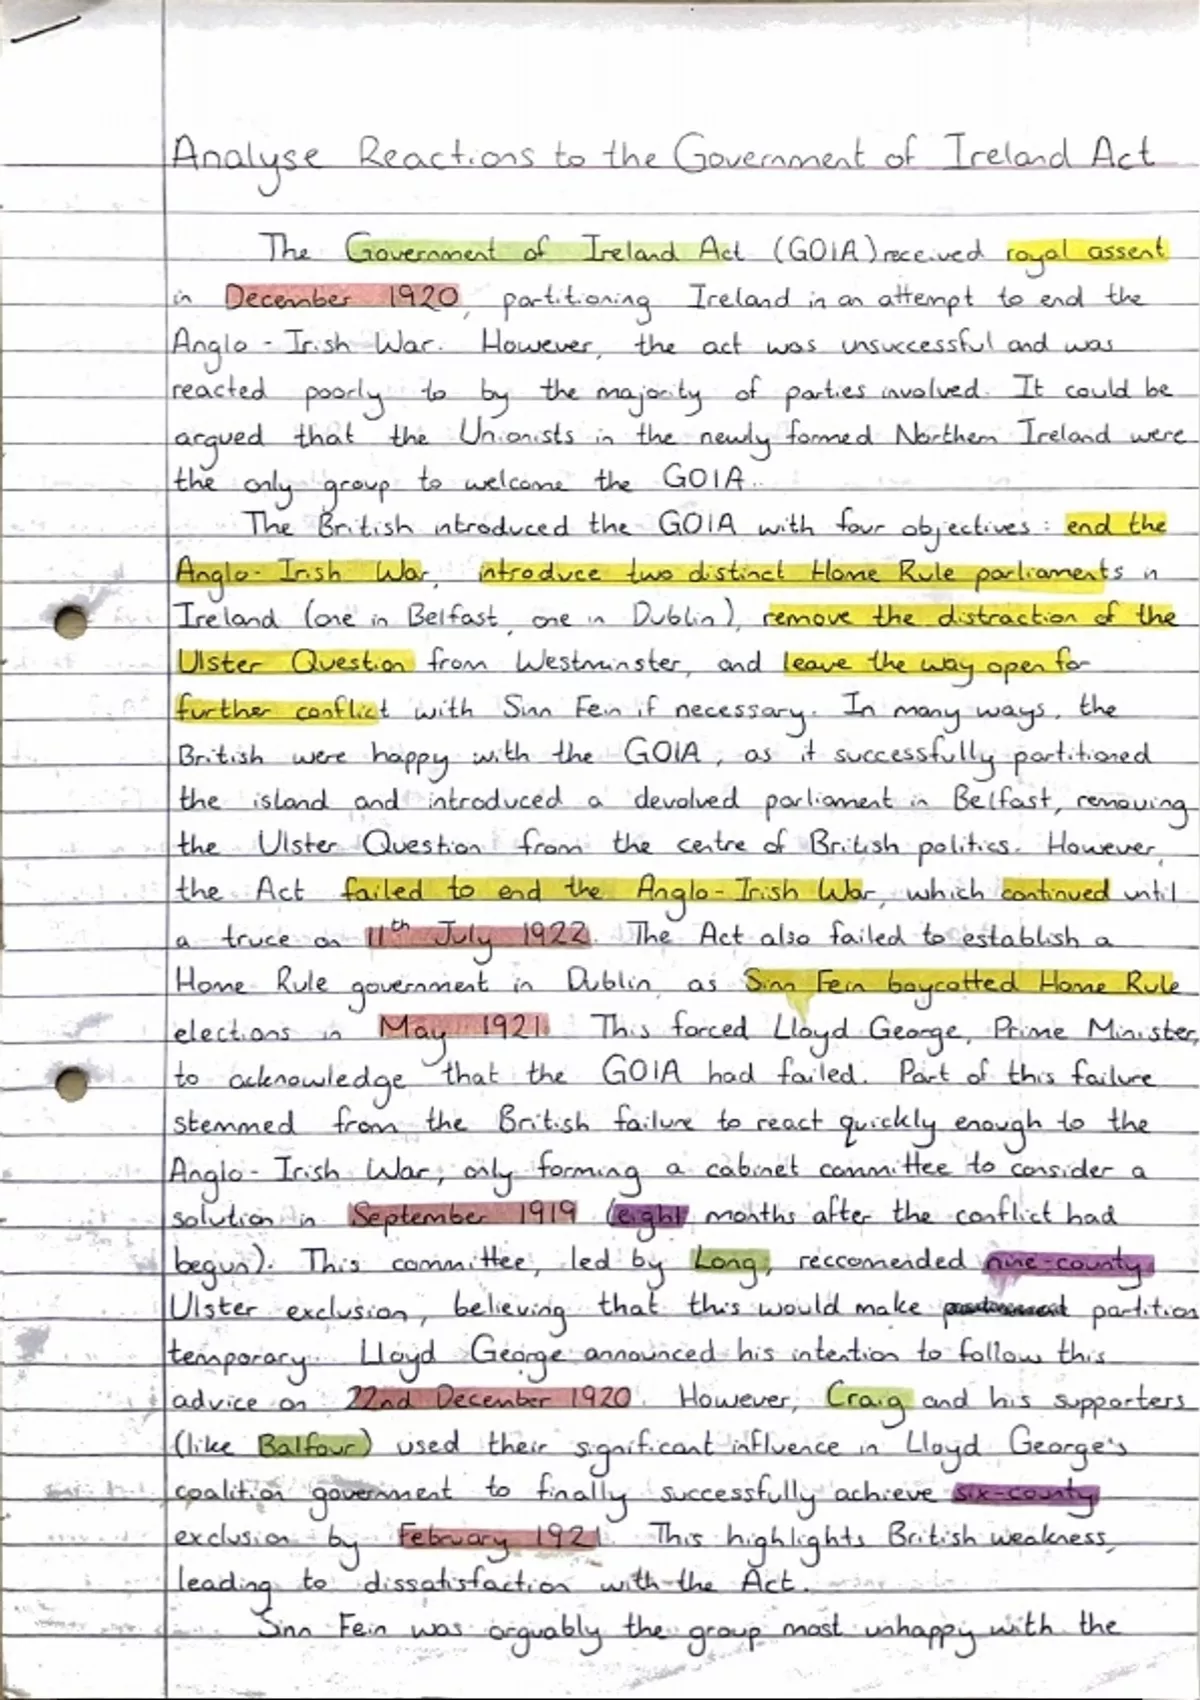 Analyse Reactions to the Government of Ireland Act
The Government of Ireland Act (GOIA) received royal assent
in December 1920, partitioning Ireland in an attempt to end the
Anglo-Irish War. However, the act was unsuccessful and was
reacted poorly to by the majority of parties involved. It could be
argued that the Unionists in the newly formed Northern Ireland were
the only group to welcome the GOIA.
The British introduced the GOIA with four objectives: end the
Anglo-Irish War, introduce two distinct Home Rule parliaments in
Ireland (one in Belfast, one in Dublin), remove the distraction of the
Ulster Question from Westminster, and leave the way open for
further conflict with Sinn Fein if necessary. In many ways, the
British were happy with the GOIA, as it successfully partitioned
the island and introduced a devolved parliament in Belfast, removing
the Ulster Question from the centre of British politics. However,
the Act failed to end the Anglo-Irish War, which continued until
a truce on 11th July 1922. The Act also failed to establish a
Home Rule government in Dublin, as Sinn Fein boycotted Home Rule
elections in May 1921. This forced Lloyd George, Prime Minister,
to acknowledge that the GOIA had failed. Part of this failure
stemmed from the British failure to react quickly enough to the
Anglo-Irish War, only forming a cabinet committee to consider a
solution in September 1919 (eight months after the conflict had
begun). This committee, led by Long, reccomended nine-county
Ulster exclusion, believing that this would make partition
temporary. Lloyd George announced his intention to follow this
advice on 22nd December 1920. However, Craig and his supporters
(like Balfour) used their significant influence in Lloyd George's
coalition government to finally successfully achieve six-county
exclusion by February 1921. This highlights British weakness,
leading to dissatisfaction with the Act.
Sinn Fein was arguably the group most unhappy with the